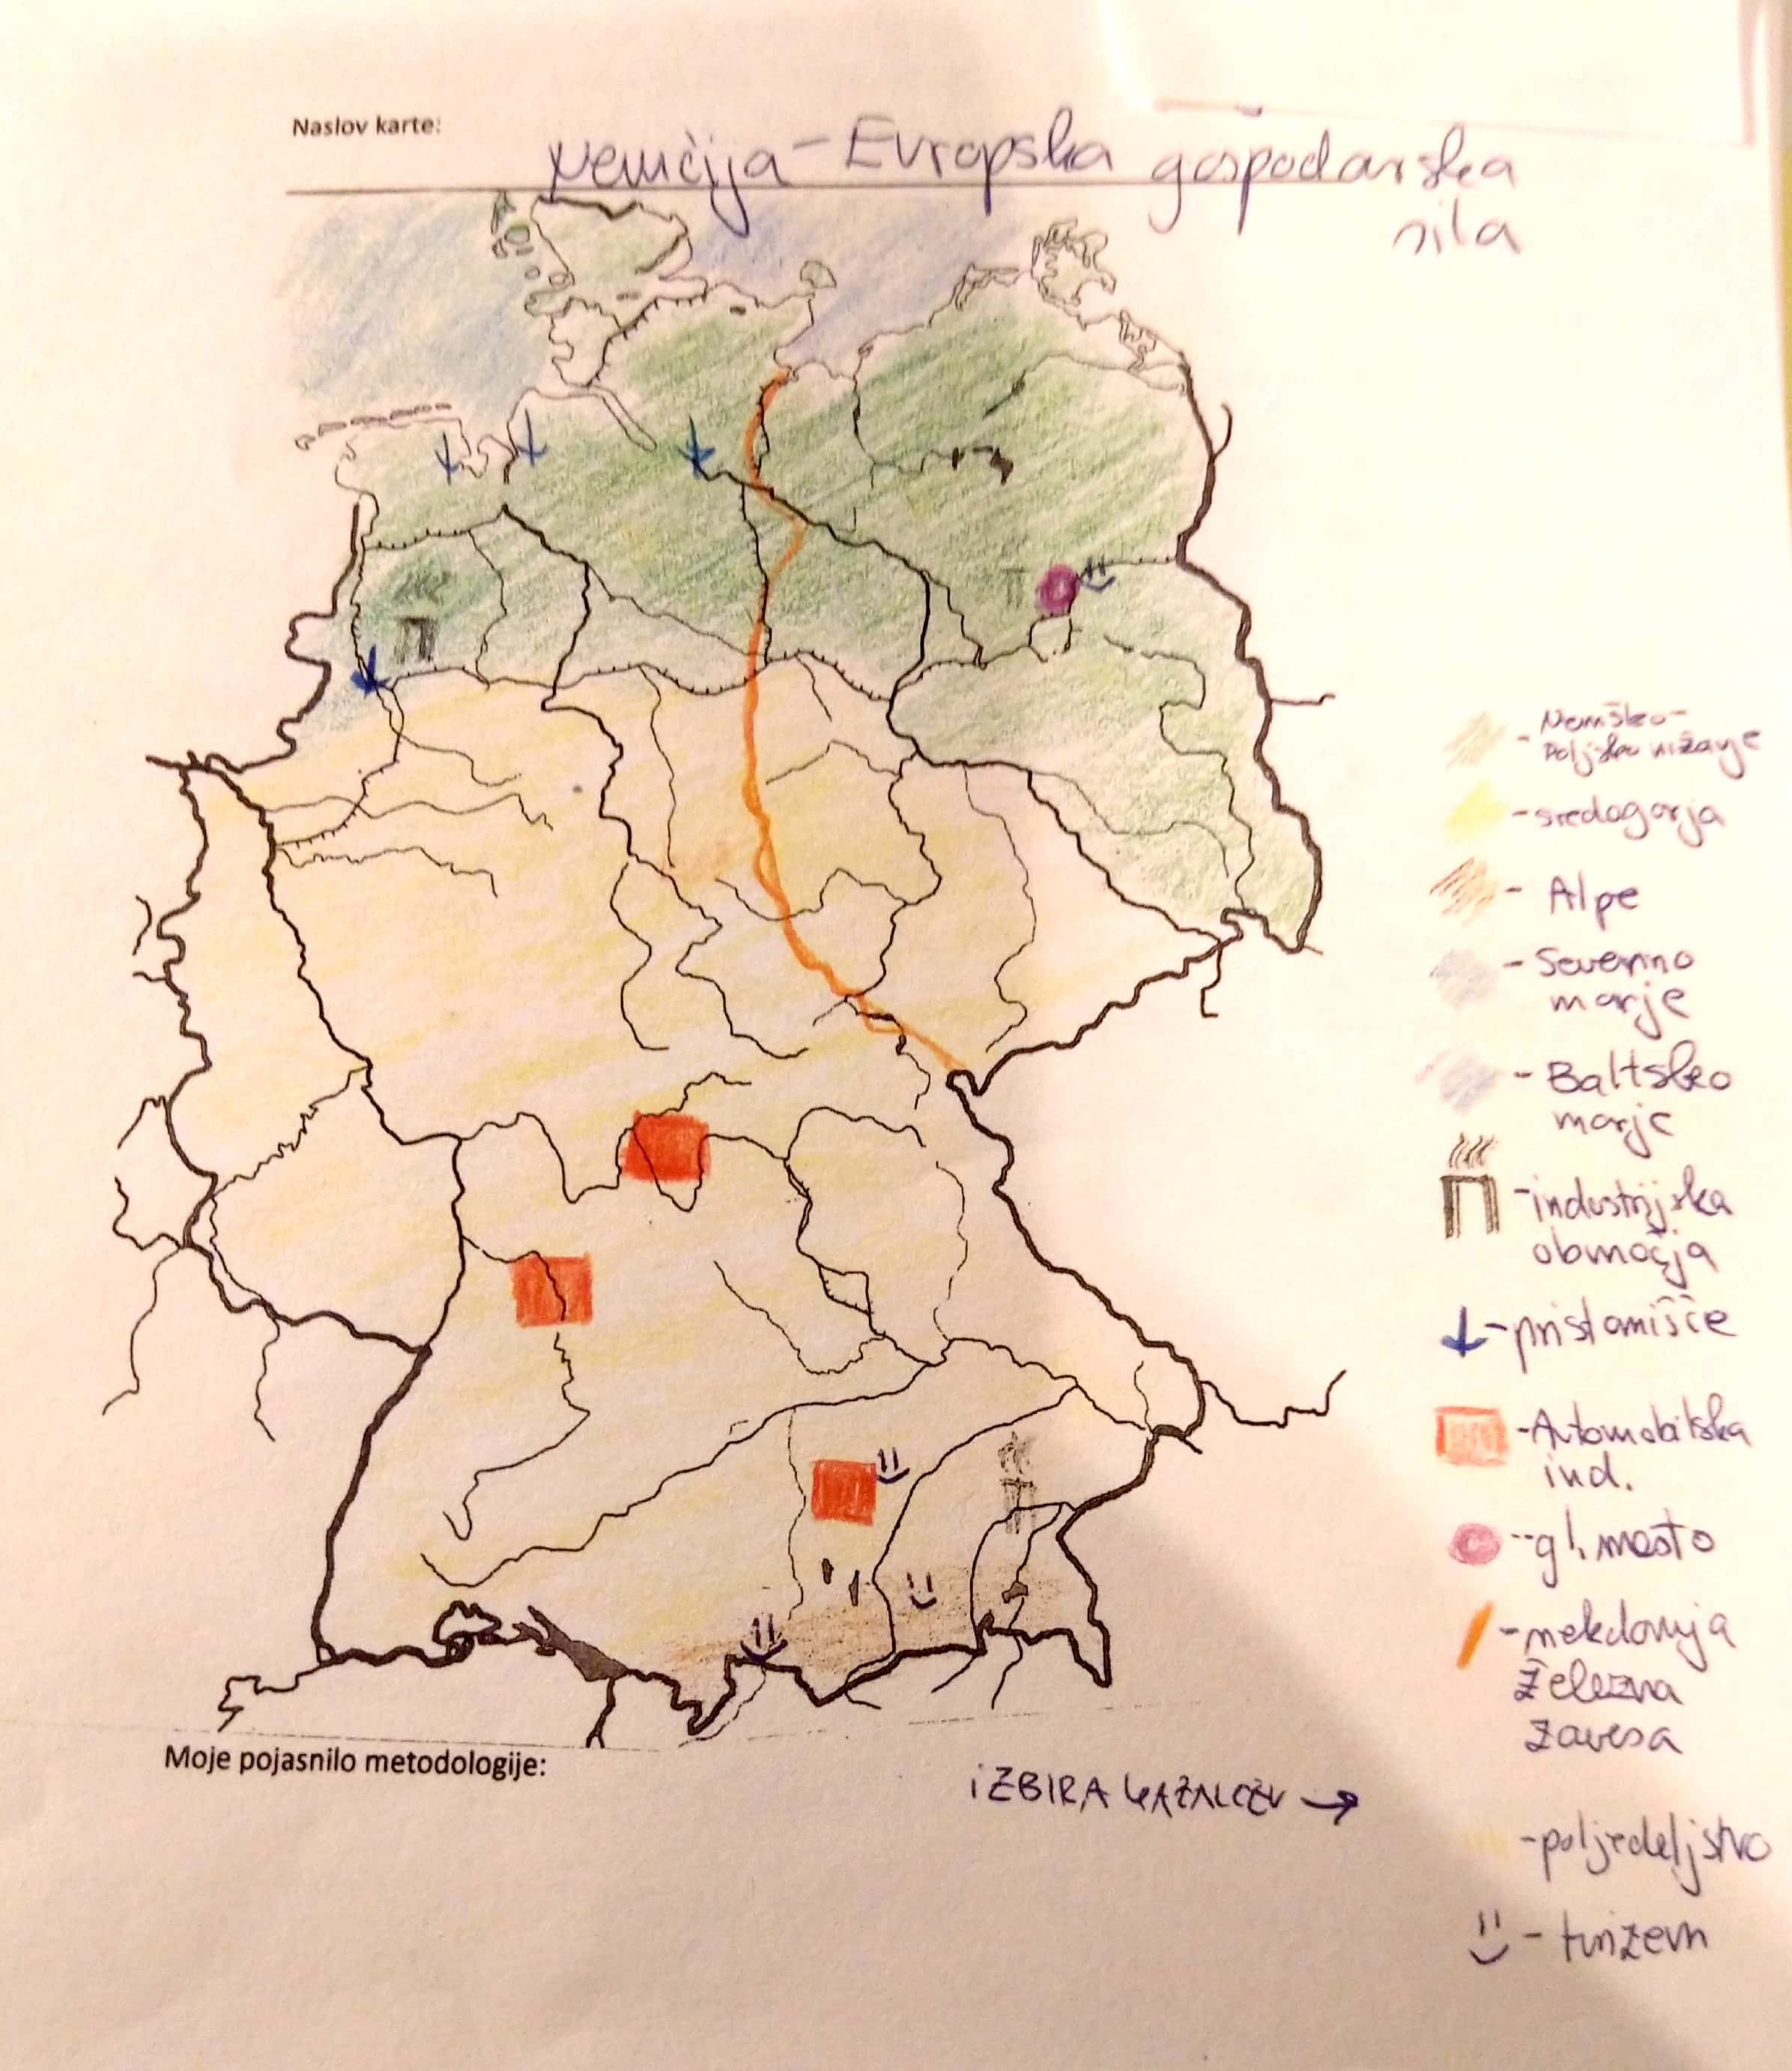 Naslov karte:
Nemčija - Evropska gospodarska
sila
- Nemško-
Poljsko nižavje
- sredogorja
- Alpe
- Severno
morje
- Baltsko
morje
- industrijska
območja
- pristanišče
- Avtomobilska
ind.
- gl. mesto
- nekdanja
železna
zavesa
Moje pojasnilo metodologije:
IZBIRA KAZALCEV →
- poljedeljstvo
- turizem